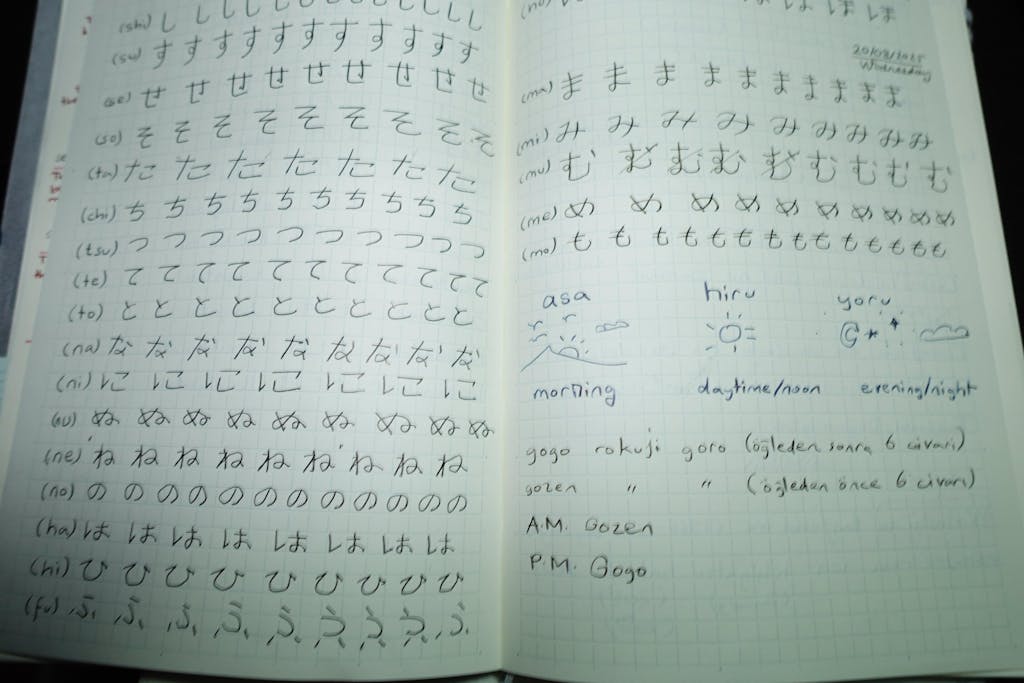 (shi) し し し し し し し し し し
(su) す す す す す す す す す す
(se) せ せ せ せ せ せ せ せ
(so) そ そ そ そ そ そ そ そ そ
(ta) た た た た た た た た
(chi) ち ち ち ち ち ち ち ち ち
(tsu) つ つ つ つ つ つ つ つ つ つ
(te) て て て て て て て て て て
(to) と と と と と と と と と
(na) な な な な な な な な な
(ni) に に に に に に に に
(nu) ぬ ぬ ぬ ぬ ぬ ぬ ぬ ぬ ぬ
(ne) ね ね ね ね ね ね ね ね ね
(no) の の の の の の の の の の
(ha) は は は は は は は は
(hi) ひ ひ ひ ひ ひ ひ ひ ひ
(fu) ふ ふ ふ ふ ふ ふ ふ ふ ふ
(ho) ほ ほ ほ
20/08/2025
Wednesday
(ma) ま ま ま ま ま ま ま ま ま ま
(mi) み み み み み み み み み
(mu) む む む む む む む む む
(me) め め め め め め め め め
(mo) も も も も も も も も も も も も
asa hiru yoru
morning daytime/noon evening/night
gogo rokuji goro (öğleden sonra 6 civarı)
gozen " " (öğleden önce 6 civarı)
A.M. Gozen
P.M. Gogo